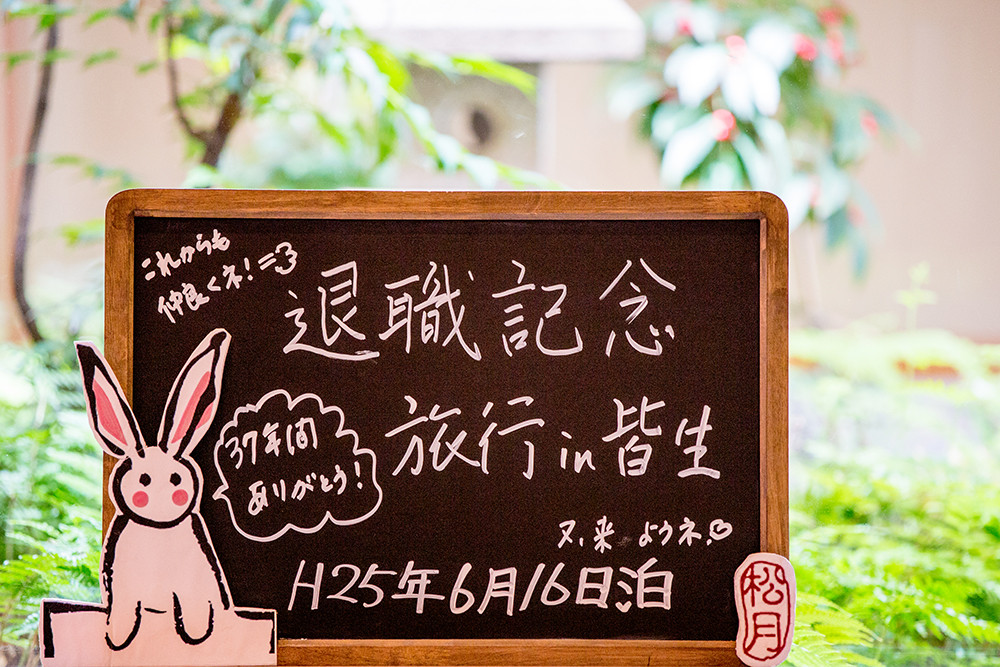 これからも
仲良くネ!
退職記念
旅行in皆生
37年間
ありがとう!
又、来ようネ!
H25年6月16日泊
松月